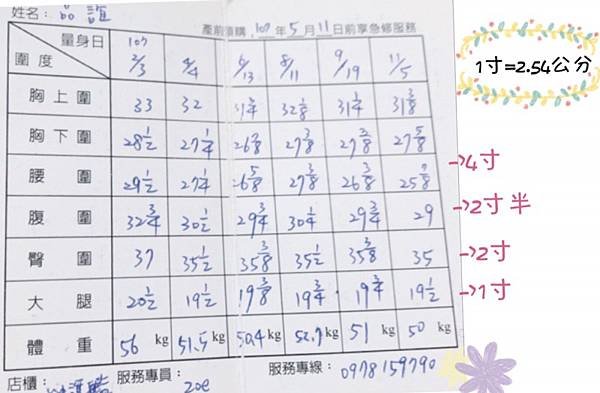 姓名：品誼
產前預購，107年5月11日前享急修服務
量身日 107 2/3 4/4 6/13 8/11 9/19 11/5
圍度
胸上圍 33 32 31 3/4 32 1/8 31 1/4 31 3/8
胸下圍 28 1/2 27 1/4 26 7/8 27 3/8 27 3/8 27 5/8
腰圍 29 1/2 27 1/4 26 5/8 27 3/8 26 3/8 25 7/8
腹圍 32 3/4 30 1/2 29 3/4 30 1/4 29 3/4 29
臀圍 37 35 1/2 35 3/8 35 1/2 35 3/8 35
大腿 20 1/2 19 1/2 19 3/8 19 3/4 19 3/4 19 1/2
體重 56 kg 51.5 kg 50.4 kg 52.7 kg 51 kg 50 kg
店櫃： 服務專員：zoe 服務專線：0978159790
1寸=2.54公分
→4寸
→2寸半
→2寸
→1寸